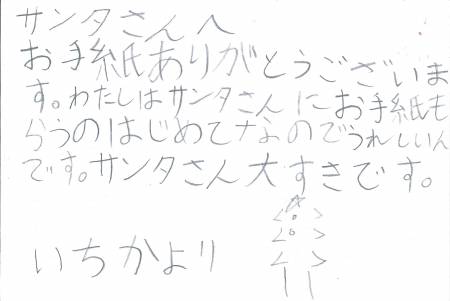 サンタさんへ
お手紙ありがとうございま
す。わたしはサンタさんにお手紙も
らうのはじめてなのでうれしいん
です。サンタさん大すきです。
いちかより